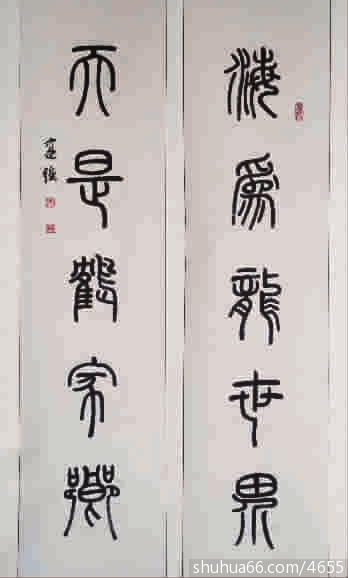 海為龍世界
天是鶴家鄉
shuhua66.com/4655